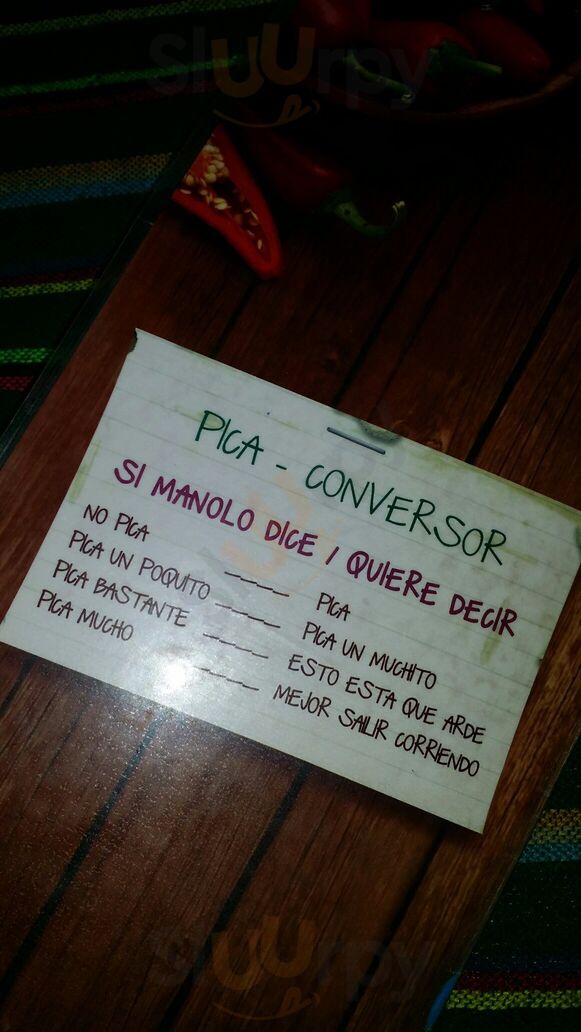 Sluurpy
PICA - CONVERSOR
SI MANOLO DICE / QUIERE DECIR
NO PICA ---- PICA
PICA UN POQUITO ---- PICA UN MUCHITO
PICA BASTANTE ---- ESTO ESTA QUE ARDE
PICA MUCHO ---- MEJOR SALIR CORRIENDO
Sluurpy